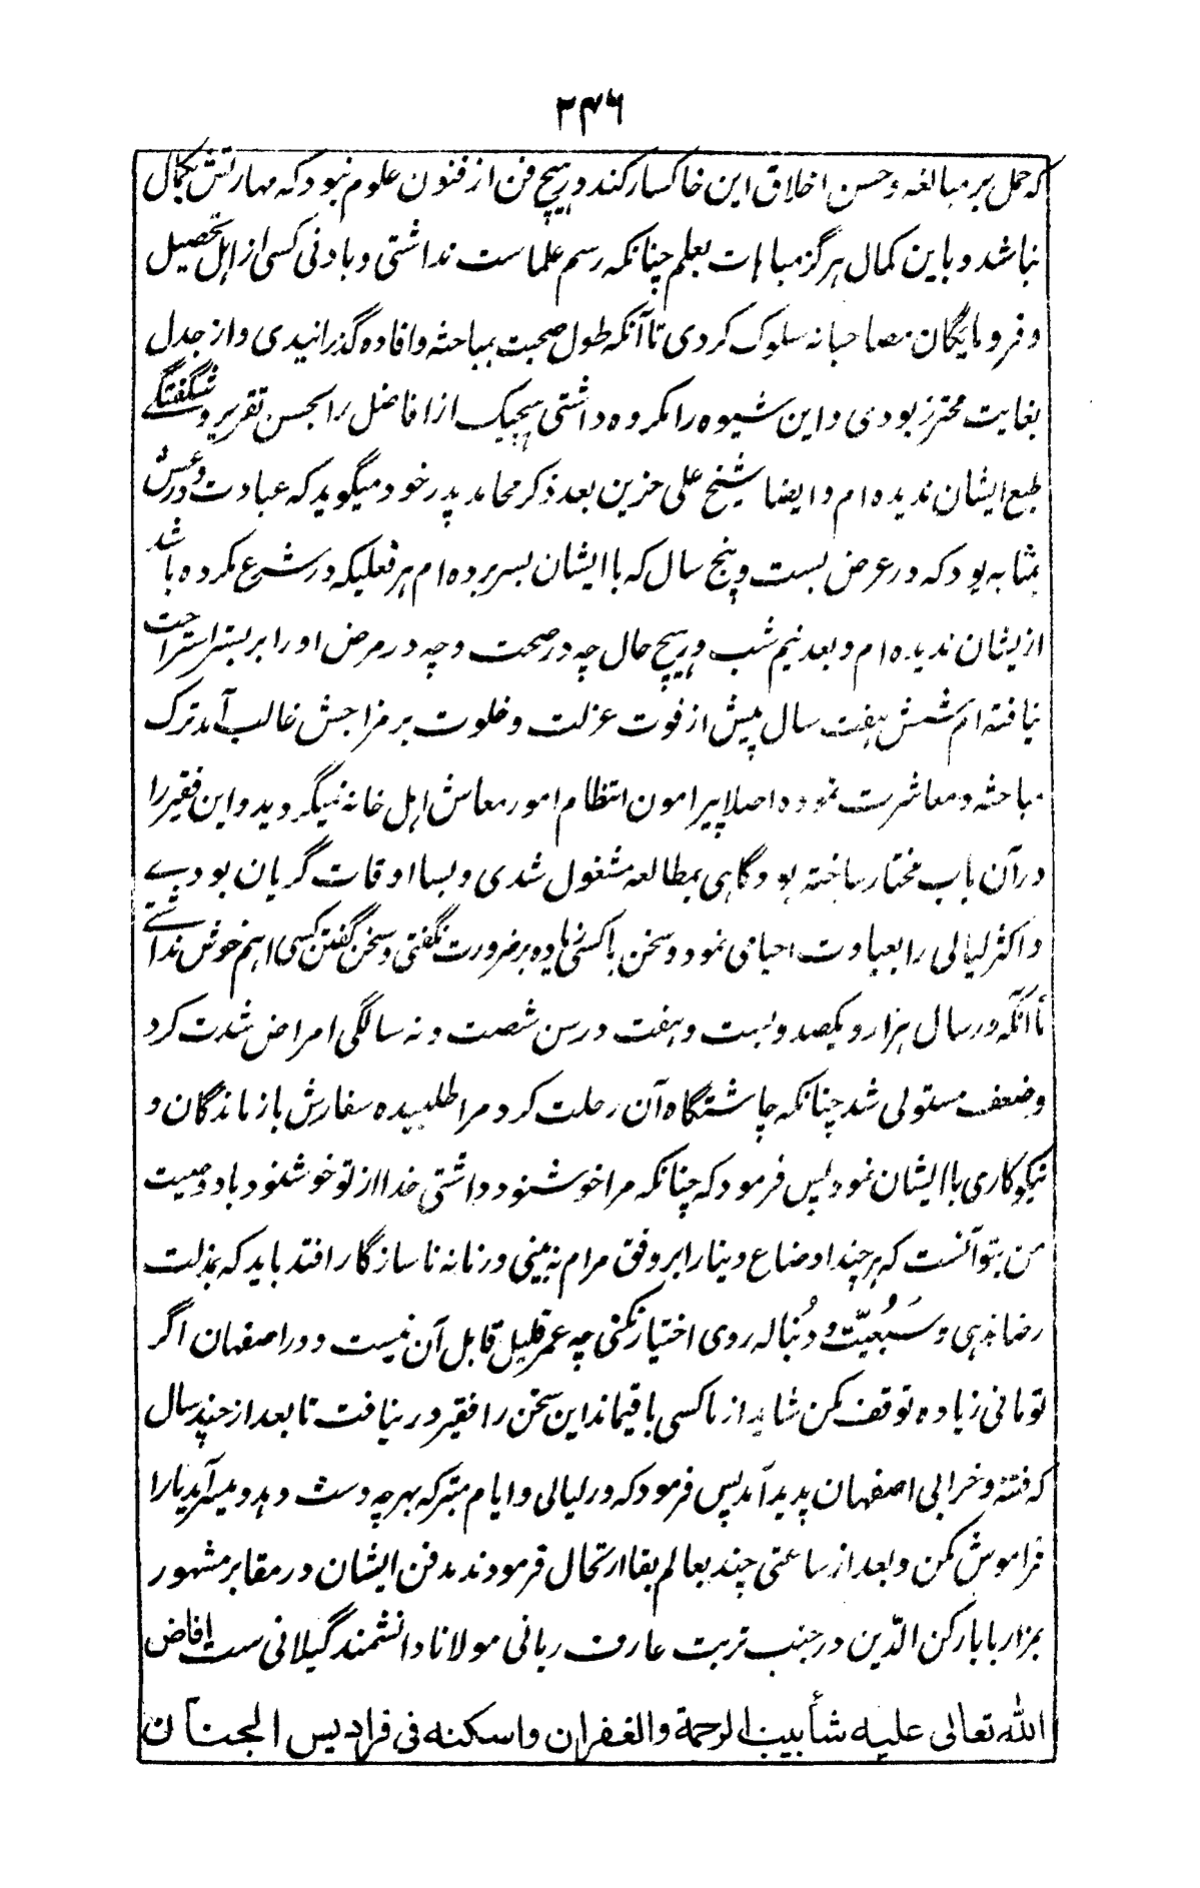 ۳۴۶
که حمل بر مبالغه و حسن اخلاق این خاکسار کند در هیچ فن از فنون علوم نبود که مهارتش بکمال
نباشد و باین کمال هرگز مباهات بعلم چنانکه رسم علماست نداشتی و با دنی کسی از اهل تحصیل
و فرومایگان مصاحبانه سلوک کردی تا آنکه طول صحبت بمباحثه و افاده گذرانیدی و از جدل
بغایت محترز بودی و این شیوه را مکروه داشتی هیچیک از افاضل را بحسن تقریر و شگفتگے
طبع ایشان ندیده ام و ایضا شیخ علی حزین بعد ذکر محامد پدر خود میگوید که عبادت و ورعش
بمثابه بود که در عرض بست و پنج سال که با ایشان بسر برده ام هر فعلیکه در شرع مکروه باشد
ازیشان ندیده ام و بعد نیم شب در هیچ حال چه در صحت و چه در مرض او را بر بستر استراحت
نیافته ام شش هفت سال پیش از فوت عزلت و خلوت بر مزاجش غالب آمد ترک
مباحثه و معاشرت نموده اصلا پیرامون انتظام امور معاش اهل خانه نمیگردید و این فقیر را
در آن باب مختار ساخته بود گاهی بمطالعه مشغول شدی و بسا اوقات گریان بودے
و اکثر لیالی را بعبادت احیا می نمود و سخن با کسی زیاده بر ضرورت نگفتی و سخن گفتن کسی را هم خوش نداشتے
تا آنکه در سال هزار و یکصد و بست و هفت در سن شصت و نه سالگی امراض شدت کرد
و ضعف مستولی شد چنانکه چاشتگاه آن رحلت کرد مرا طلبیده سفارش بازماندگان و
نیکوکاری با ایشان نمود پس فرمود که چنانکه مرا خوشنود داشتی خدا از تو خوشنود باد وصیت
من بتو آنست که هر چند اوضاع دنیا را بر وفق مرام نه بینی و زمانه ناسازگار افتد باید که بمذلت
رضا ندهی و سَبُعیّت و دُنباله روی اختیار نکنی چه عمر قلیل قابل آن نیست و در اصفهان اگر
توانی زیاده توقف مکن شاید از ما کسی باقیماند این سخن را فقیر در نیافت تا بعد از چند سال
که فتنه و خرابی اصفهان پدید آمد پس فرمود که در لیالی و ایام متبرکه بهرچه دست دهد و میسر آید یارا
فراموش مکن و بعد از ساعتی چند بعالم بقا ارتحال فرمودند مدفن ایشان در مقابر مشهور
بمزار بابا رکن الدّین در جنب تربت عارف ربانی مولانا دانشمند گیلانی ست افاض
الله تعالی علیه شأبیب الرحمة والغفران واسکنه فی فرادیس الجنان